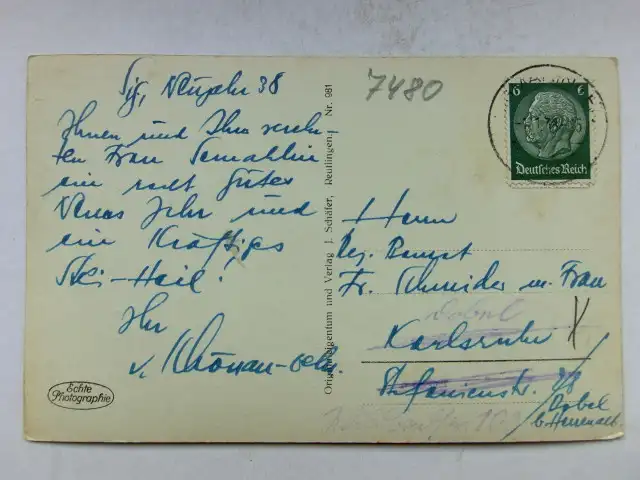 Sig, Neujahr 38
Ihnen und Ihrer verehr-
ten Frau Gemahlin
ein recht gutes
Neues Jahr und
ein kräftiges
Ski-Heil!
Ihr
v. Schönau-
Originaleigentum und Verlag J. Schäfer, Reutlingen. Nr. 981
7480
6
Deutsches Reich
Herrn
Reg. Baurat
Fr. Schneider u. Frau
Dobel
Karlsruhe
Stefanienstr. 28
Dobel
b. Herrenalb
Echte
Photographie